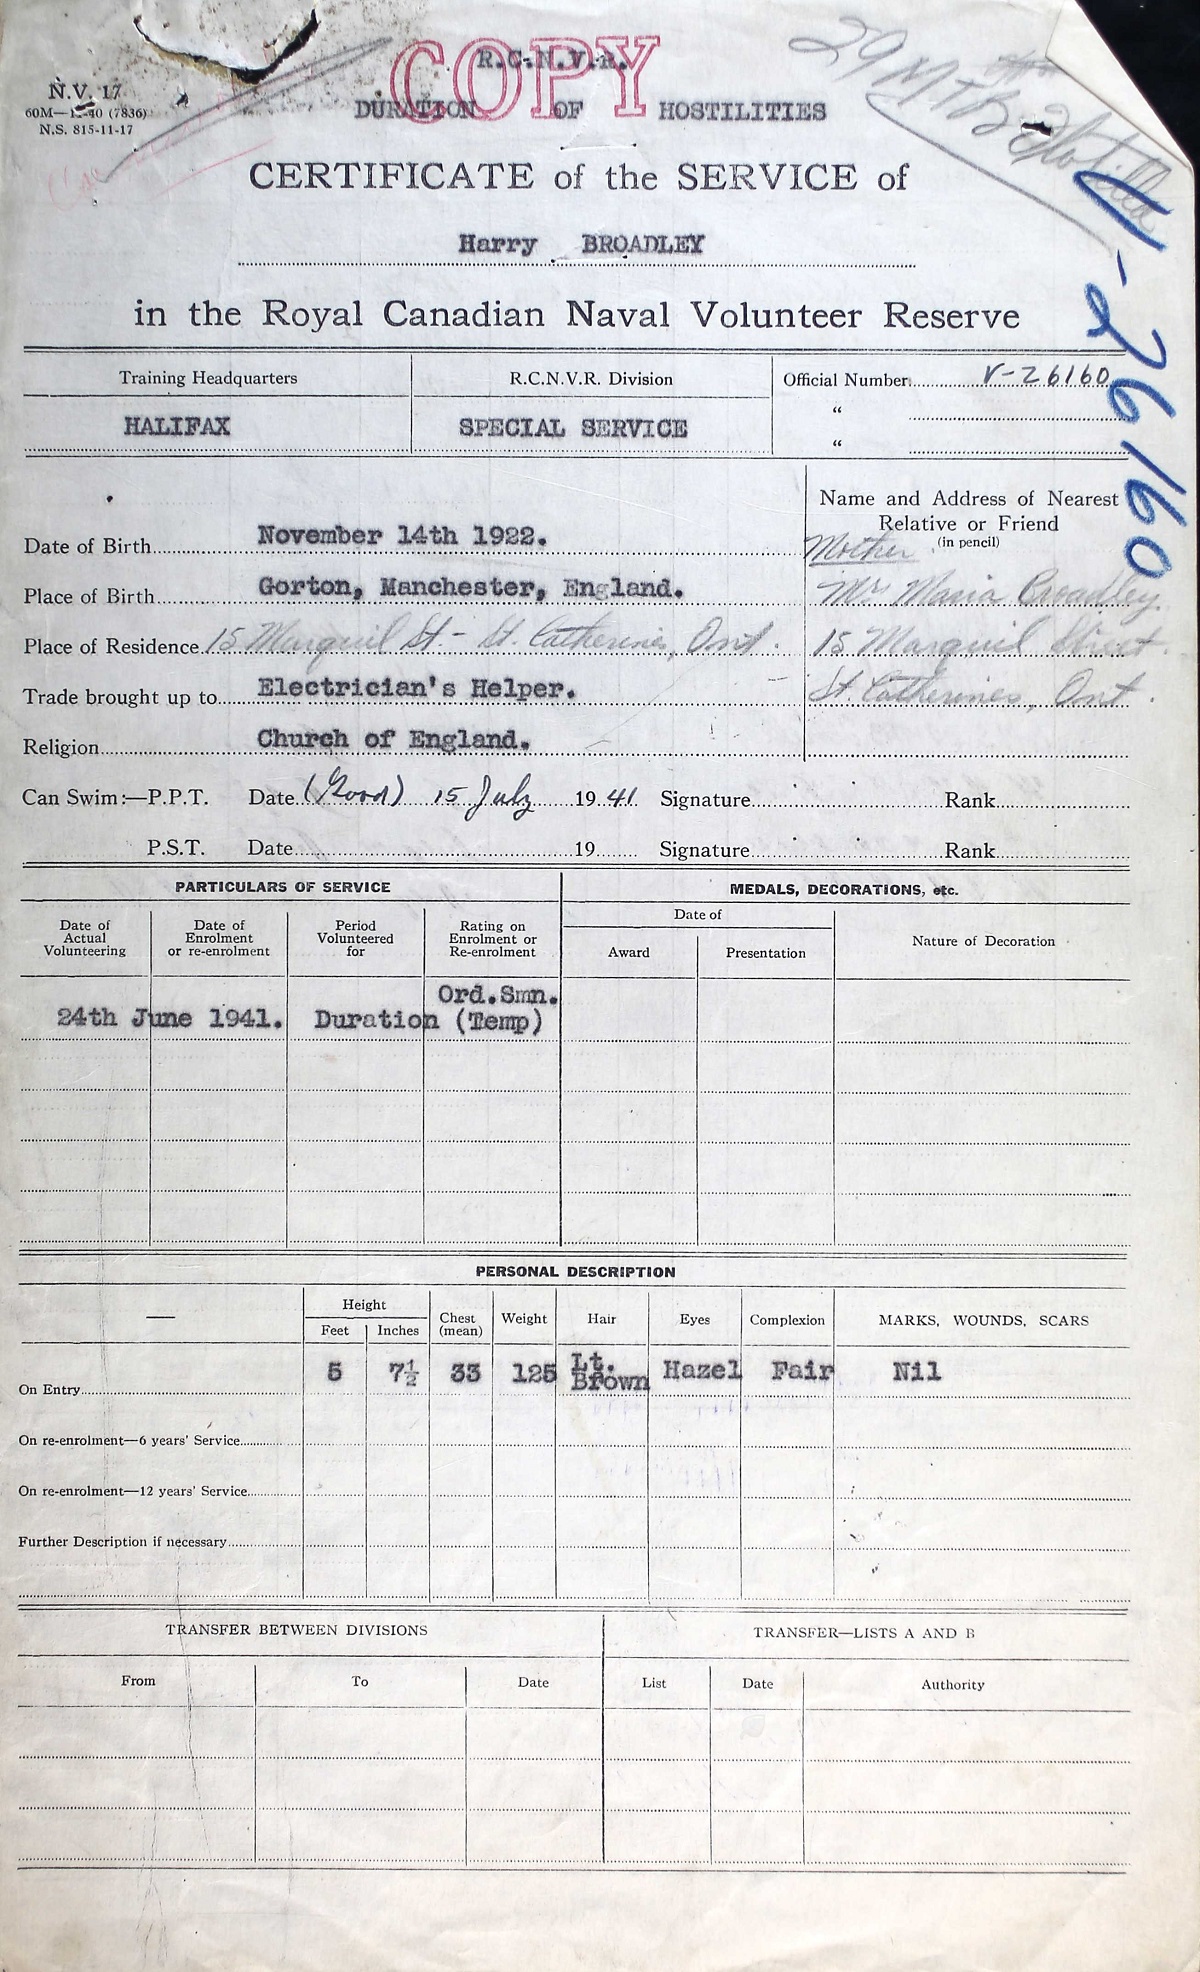 COPY
R.C.N.V.R.
DURATION OF HOSTILITIES
N.V. 17
(7836)
N.S. 815-11-17
29 MTB Flotilla
V-26160
CERTIFICATE of the SERVICE of
Harry BROADLEY
in the Royal Canadian Naval Volunteer Reserve
Training Headquarters R.C.N.V.R. Division Official Number V-26160
HALIFAX SPECIAL SERVICE "
"
Name and Address of Nearest
Relative or Friend
(in pencil)
Date of Birth November 14th 1922. Mother
Place of Birth Gorton, Manchester, England. Mrs Maria Broadley
Place of Residence 15 St - St. Catherines, Ont. 15 Street
Trade brought up to Electrician's Helper. St. Catherines, Ont.
Religion Church of England.
Can Swim:—P.P.T. Date (Good) 15 July 1941 Signature Rank
P.S.T. Date 19 Signature Rank
PARTICULARS OF SERVICE MEDALS, DECORATIONS, etc.
Date of Actual Volunteering Date of Enrolment or re-enrolment Period Volunteered for Rating on Enrolment or Re-enrolment Date of Nature of Decoration
Award Presentation
Ord.Smn.
24th June 1941. Duration (Temp)
PERSONAL DESCRIPTION
— Height Chest (mean) Weight Hair Eyes Complexion MARKS, WOUNDS, SCARS
Feet Inches
On Entry 5 7½ 33 125 Lt. Brown Hazel Fair Nil
On re-enrolment—6 years' Service
On re-enrolment—12 years' Service
Further Description if necessary
TRANSFER BETWEEN DIVISIONS TRANSFER—LISTS A AND B
From To Date List Date Authority